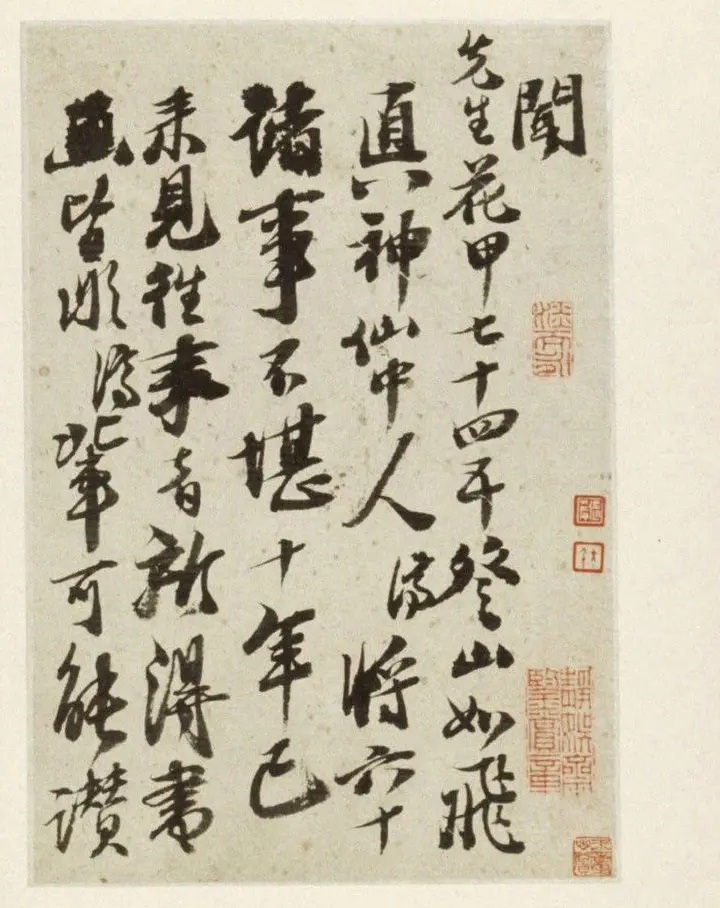 聞
先生花甲七十四五登山如飛
真神仙中人濟將六十
諸事不堪十年已
來見往來者新得書
畫皆非濟輩可能讚